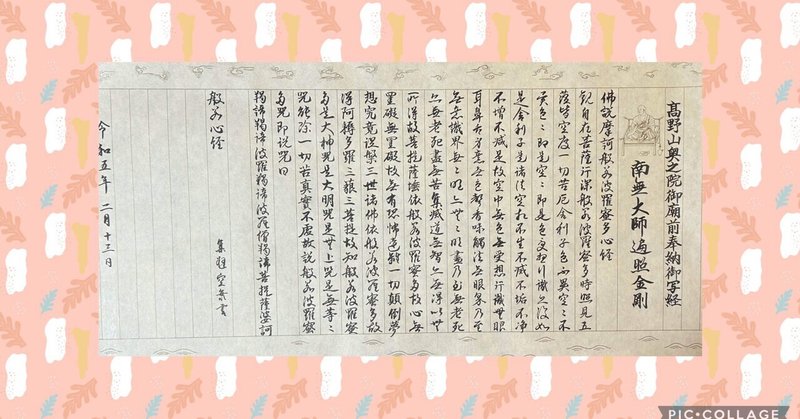 高野山奥之院御廟前奉納御写経
南無大師遍照金剛
佛説摩訶般若波羅蜜多心経
観自在菩薩行深般若波羅蜜多時照見五
蘊皆空度一切苦厄舎利子色不異空々不
異色々即是空々即是色受想行識亦復如
是舎利子是諸法空相不生不滅不垢不浄
不増不減是故空中無色無受想行識無眼
耳鼻舌身意無色声香味触法無眼界乃至
無意識界無々明亦無々明盡乃至無老死
亦無老死盡無苦集滅道無智亦無得以無
所得故菩提薩埵依般若波羅蜜多故心無
罣礙無罣礙故無有恐怖遠離一切顛倒夢
想究竟涅槃三世諸佛依般若波羅蜜多故
得阿耨多羅三藐三菩提故知般若波羅蜜
多是大神咒是大明咒是無上咒是無等々
咒能除一切苦真實不虚故説般若波羅蜜
多咒即説咒曰
羯諦羯諦波羅羯諦波羅僧羯諦菩提薩婆訶
般若心経
令和五年二月十三日
PIC•COLLAGE